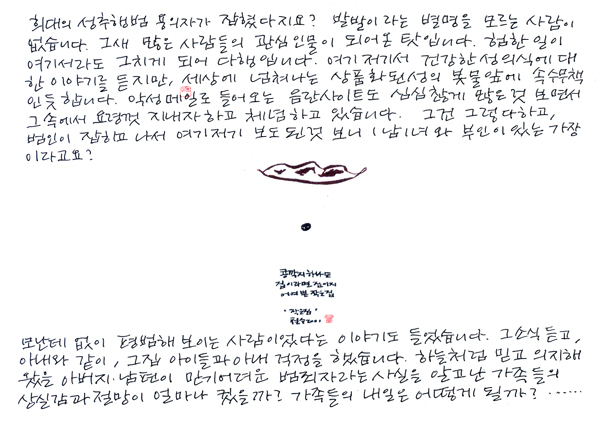 희대의 성추행범 용의자가 잡혔다지요? 발발이라는 별명을 모르는 사람이
없습니다. 그새 많은 사람들의 관심 인물이 되어온 탓입니다. 험한 일이
여기서라도 그치게 되어 다행입니다. 여기저기서 건강한 성의식에 대
한 이야기를 듣지만, 세상에 넘쳐나는 상품화된 성의 봇물앞에 속수무책
인듯 합니다. 악성메일로 들어오는 음란사이트도 심심찮게 많은것 보면서
그 속에서 요령껏 지내자 하고 체념하고 있습니다. 그건 그렇다하고,
범인이 잡히고 나서 여기저기 보도된것 보니 1남1녀와 부인이 있는 가장
이라고요?
콩깍지 하나도
집이라면 집이지
어여쁜 작은집
모난데 없이 평범해 보이는 사람이었다는 이야기도 들었습니다. 그소식 듣고,
아내와 같이, 그집 아이들과 아내 걱정을 했습니다. 하늘처럼 믿고 의지해
왔을 아버지·남편이 믿기어려운 범죄자라는 사실을 알고난 가족들의
상실감과 절망이 얼마나 컸을까? 가족들의 내일은 어떻게 될까? ······